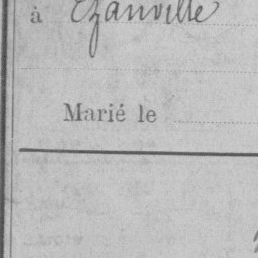 à Ezanville
Marié le